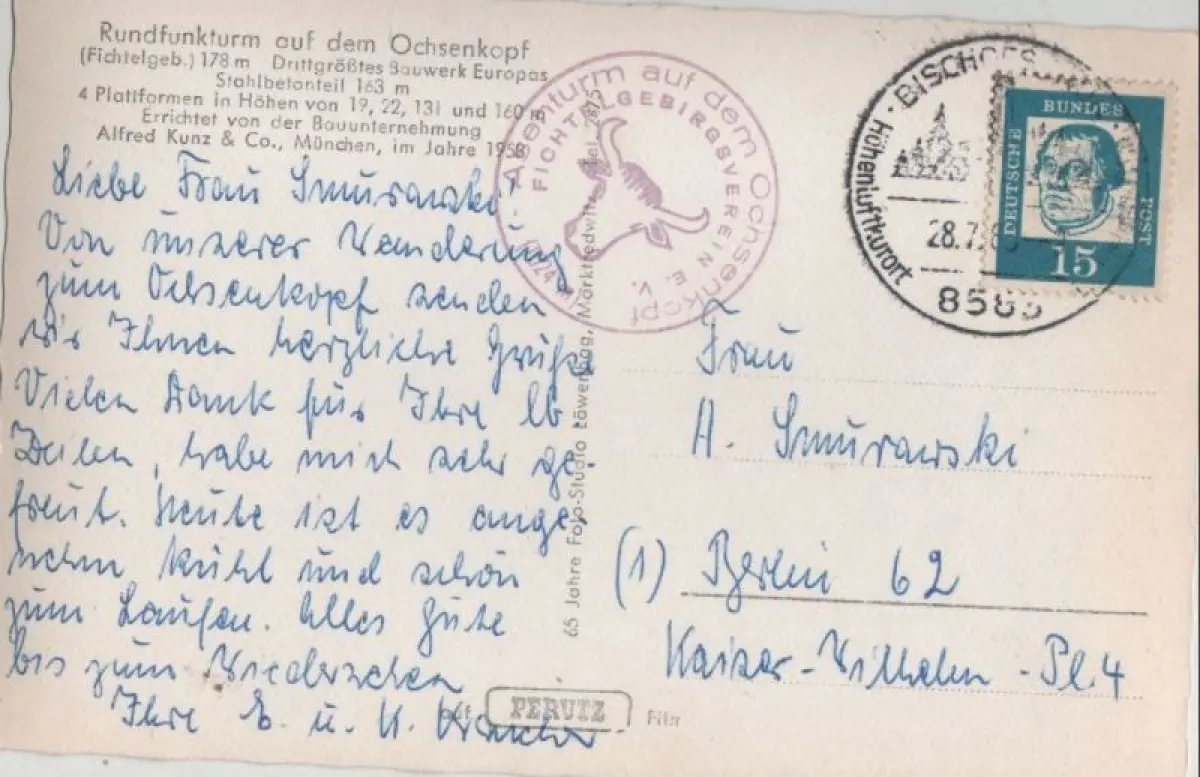 Rundfunkturm auf dem Ochsenkopf
(Fichtelgeb.) 178 m Drittgrößtes Bauwerk Europas
Stahlbetonteil 163 m
4 Plattformen in Höhen von 19, 22, 131 und 160 m
Errichtet von der Bauunternehmung
Alfred Kunz & Co., München, im Jahre 1958
Liebe Frau Smurawski!
Von unserer Wanderung
zum Ochsenkopf senden
wir Ihnen herzliche Grüße
Vielen Dank für Ihre lb
Zeilen, habe mich sehr ge-
freut. Heute ist es ange
nehm kühl und schön
zum Laufen. Alles Gute
bis zum Wiedersehen
Ihre E. u. K.
Asenturm auf dem Ochsenkopf
FICHTELGEBIRGSVEREIN E. V.
1024 m
65 Jahre Foto-Studio Löwenhag, Marktredwitz, Tel. 2875
PERUTZ
Film
BISCHOFS
Höhenluftkurort
28.7.6
8583
DEUTSCHE
BUNDES
POST
15
Frau
A. Smurawski
(1) Berlin 62
Kaiser-Wilhelm-Pl. 4